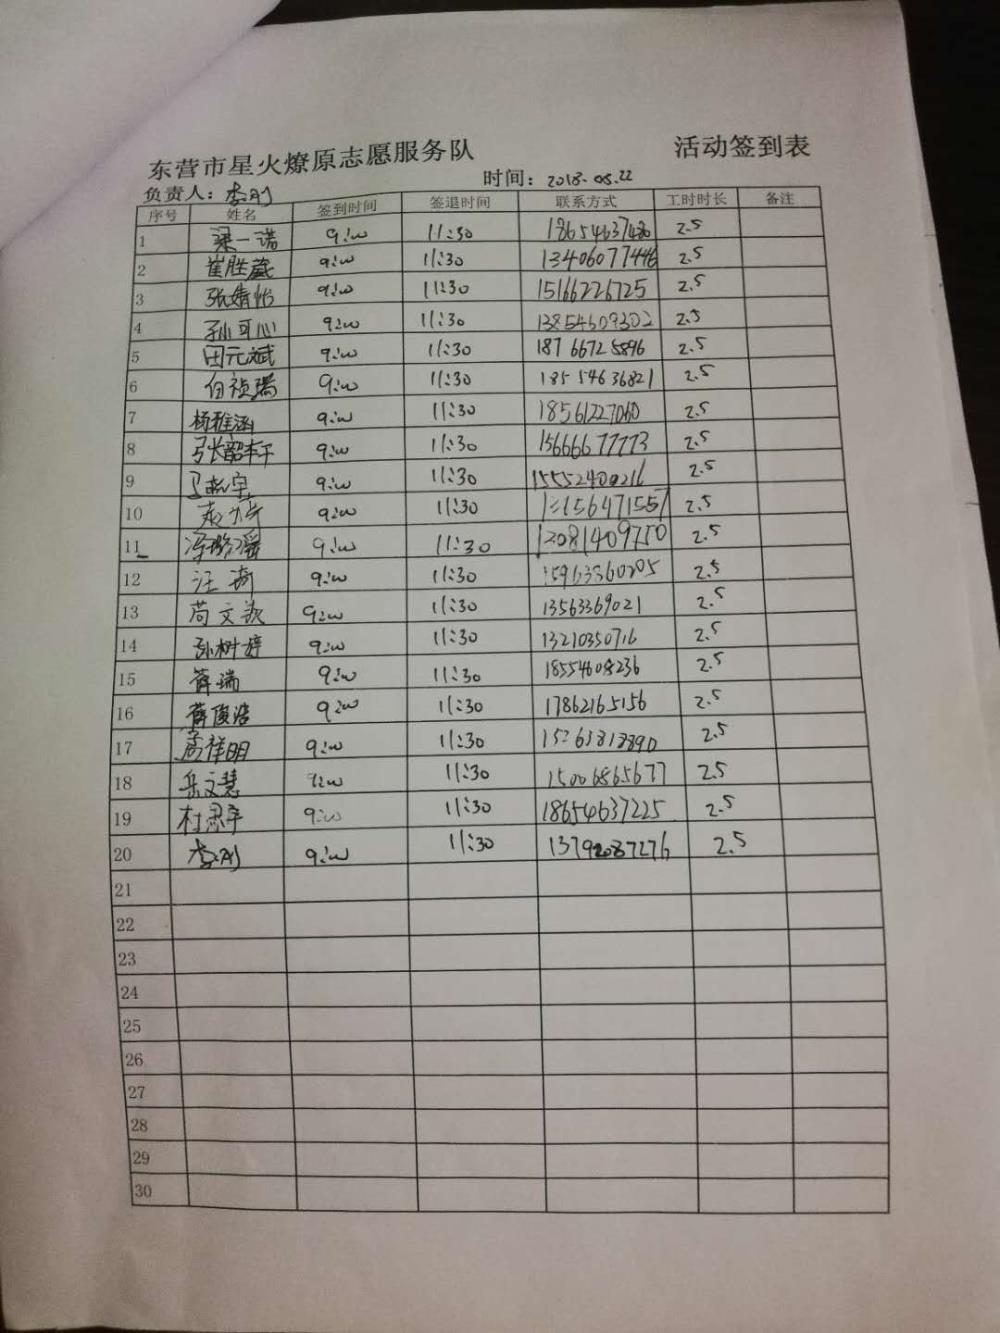 东营市星火燎原志愿服务队 活动签到表
负责人：李刚 时间：2018.08.22
序号 姓名 签到时间 签退时间 联系方式 工时时长 备注
1 梁一诺 9:00 11:30 2.5
2 崔胜葳 9:00 11:30 13406077446 2.5
3 张婧怡 9:00 11:30 15166226725 2.5
4 孙可心 9:00 11:30 13854609302 2.5
5 田元斌 9:00 11:30 18766725896 2.5
6 白祯瑞 9:00 11:30 18554636821 2.5
7 杨雅涵 9:00 11:30 18561227060 2.5
8 张韶轩 9:00 11:30 15666677773 2.5
9 9:00 11:30 15552400216 2.5
10 9:00 11:30 2.5
11 冯璐瑶 9:00 11:30 2.5
12 汪琦 9:00 11:30 2.5
13 苟文歆 9:00 11:30 13563369021 2.5
14 孙树婷 9:00 11:30 13210350716 2.5
15 薛瑞 9:00 11:30 18554608236 2.5
16 薛俊浩 9:00 11:30 17862165156 2.5
17 周祥明 9:00 11:30 2.5
18 岳文慧 9:00 11:30 15006865677 2.5
19 杜思宇 9:00 11:30 18654637225 2.5
20 李刚 9:00 11:30 13792087276 2.5
21
22
23
24
25
26
27
28
29
30